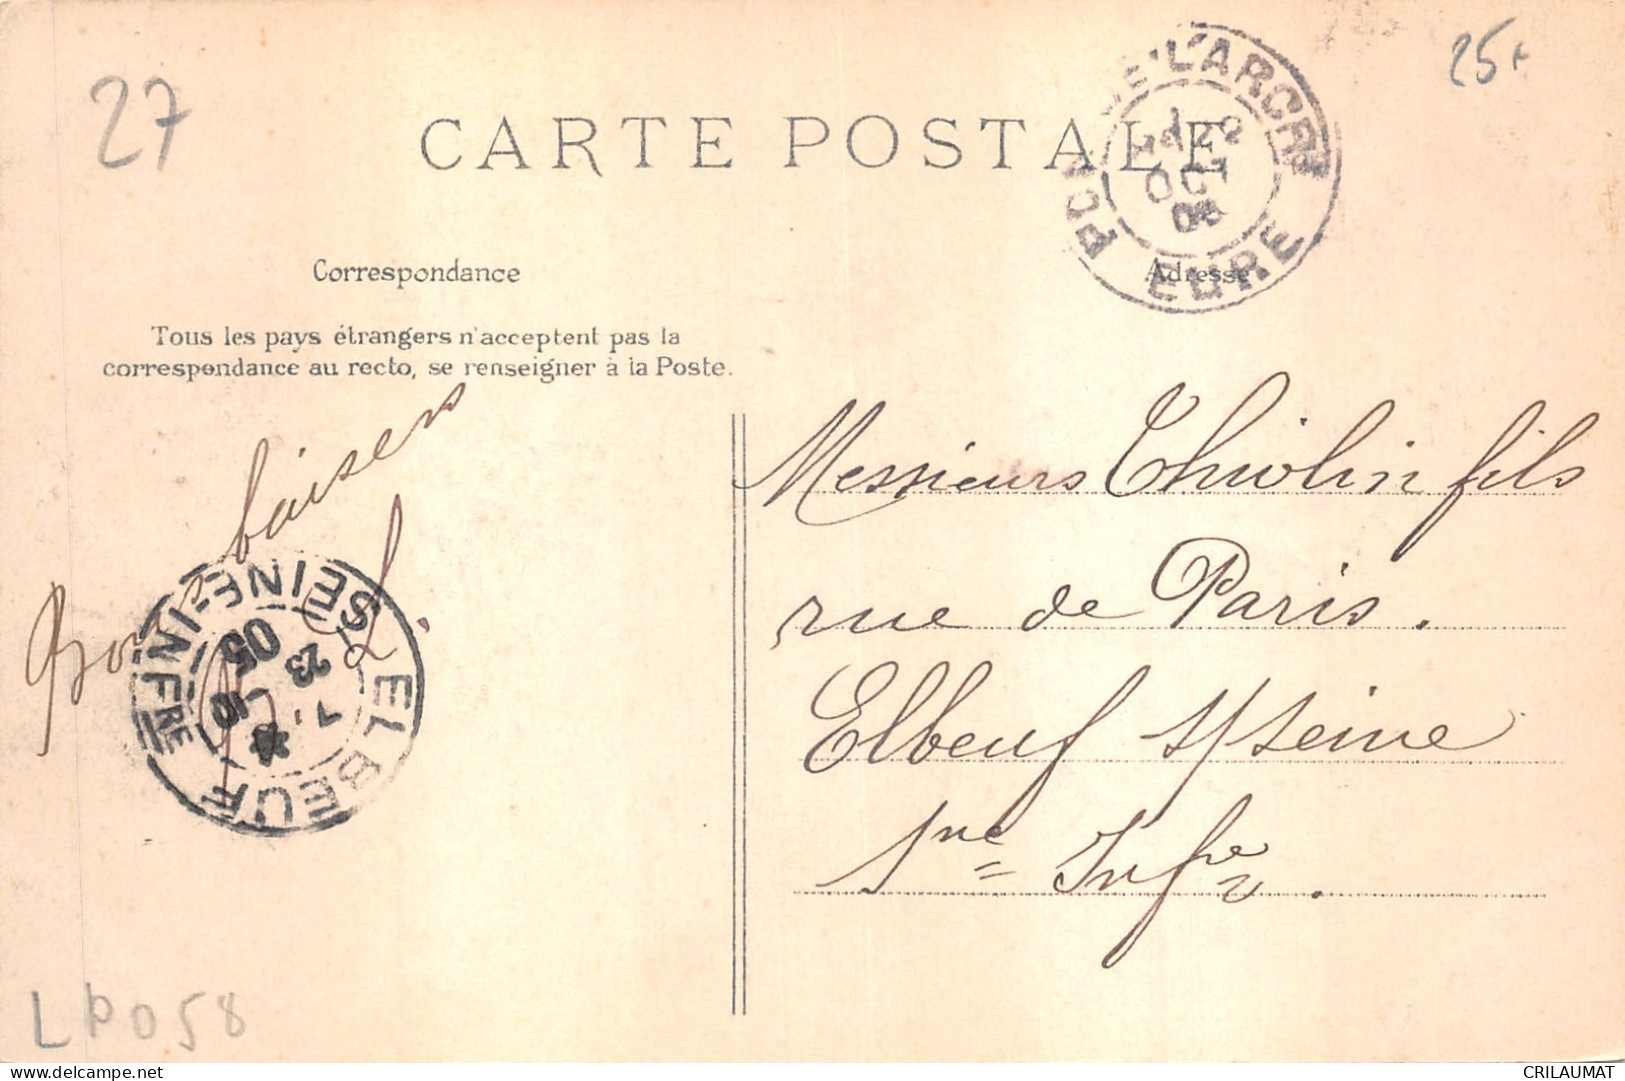 27
25
CARTE POSTALE
PONT-DE-L'ARCHE
OCT
05
EURE
Correspondance
Adresse
Tous les pays étrangers n'acceptent pas la
correspondance au recto, se renseigner à la Poste.
Bons baisers
Messieurs Thiolin fils
rue de Paris.
Elbeuf s/Seine
Sne Infre.
ELBEUF
SEINE-INFRE
23
10
05
LP058
CRILAUMAT